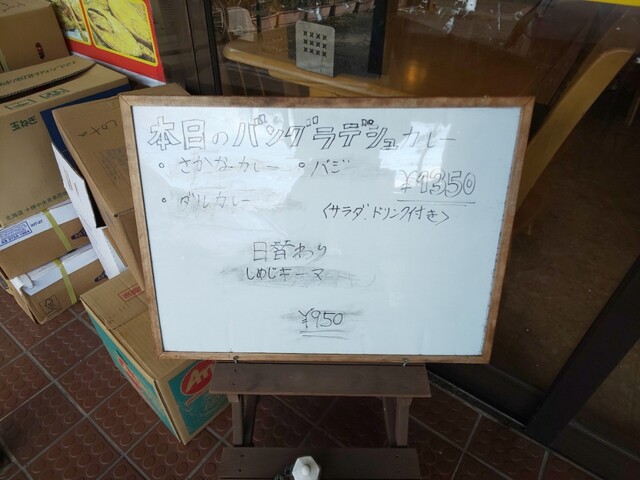 本日のバングラデシュカレー
・さかなカレー ・バジ
¥1350
・ダルカレー
〈サラダ、ドリンク付き〉
日替わり
しめじキーマ
¥950